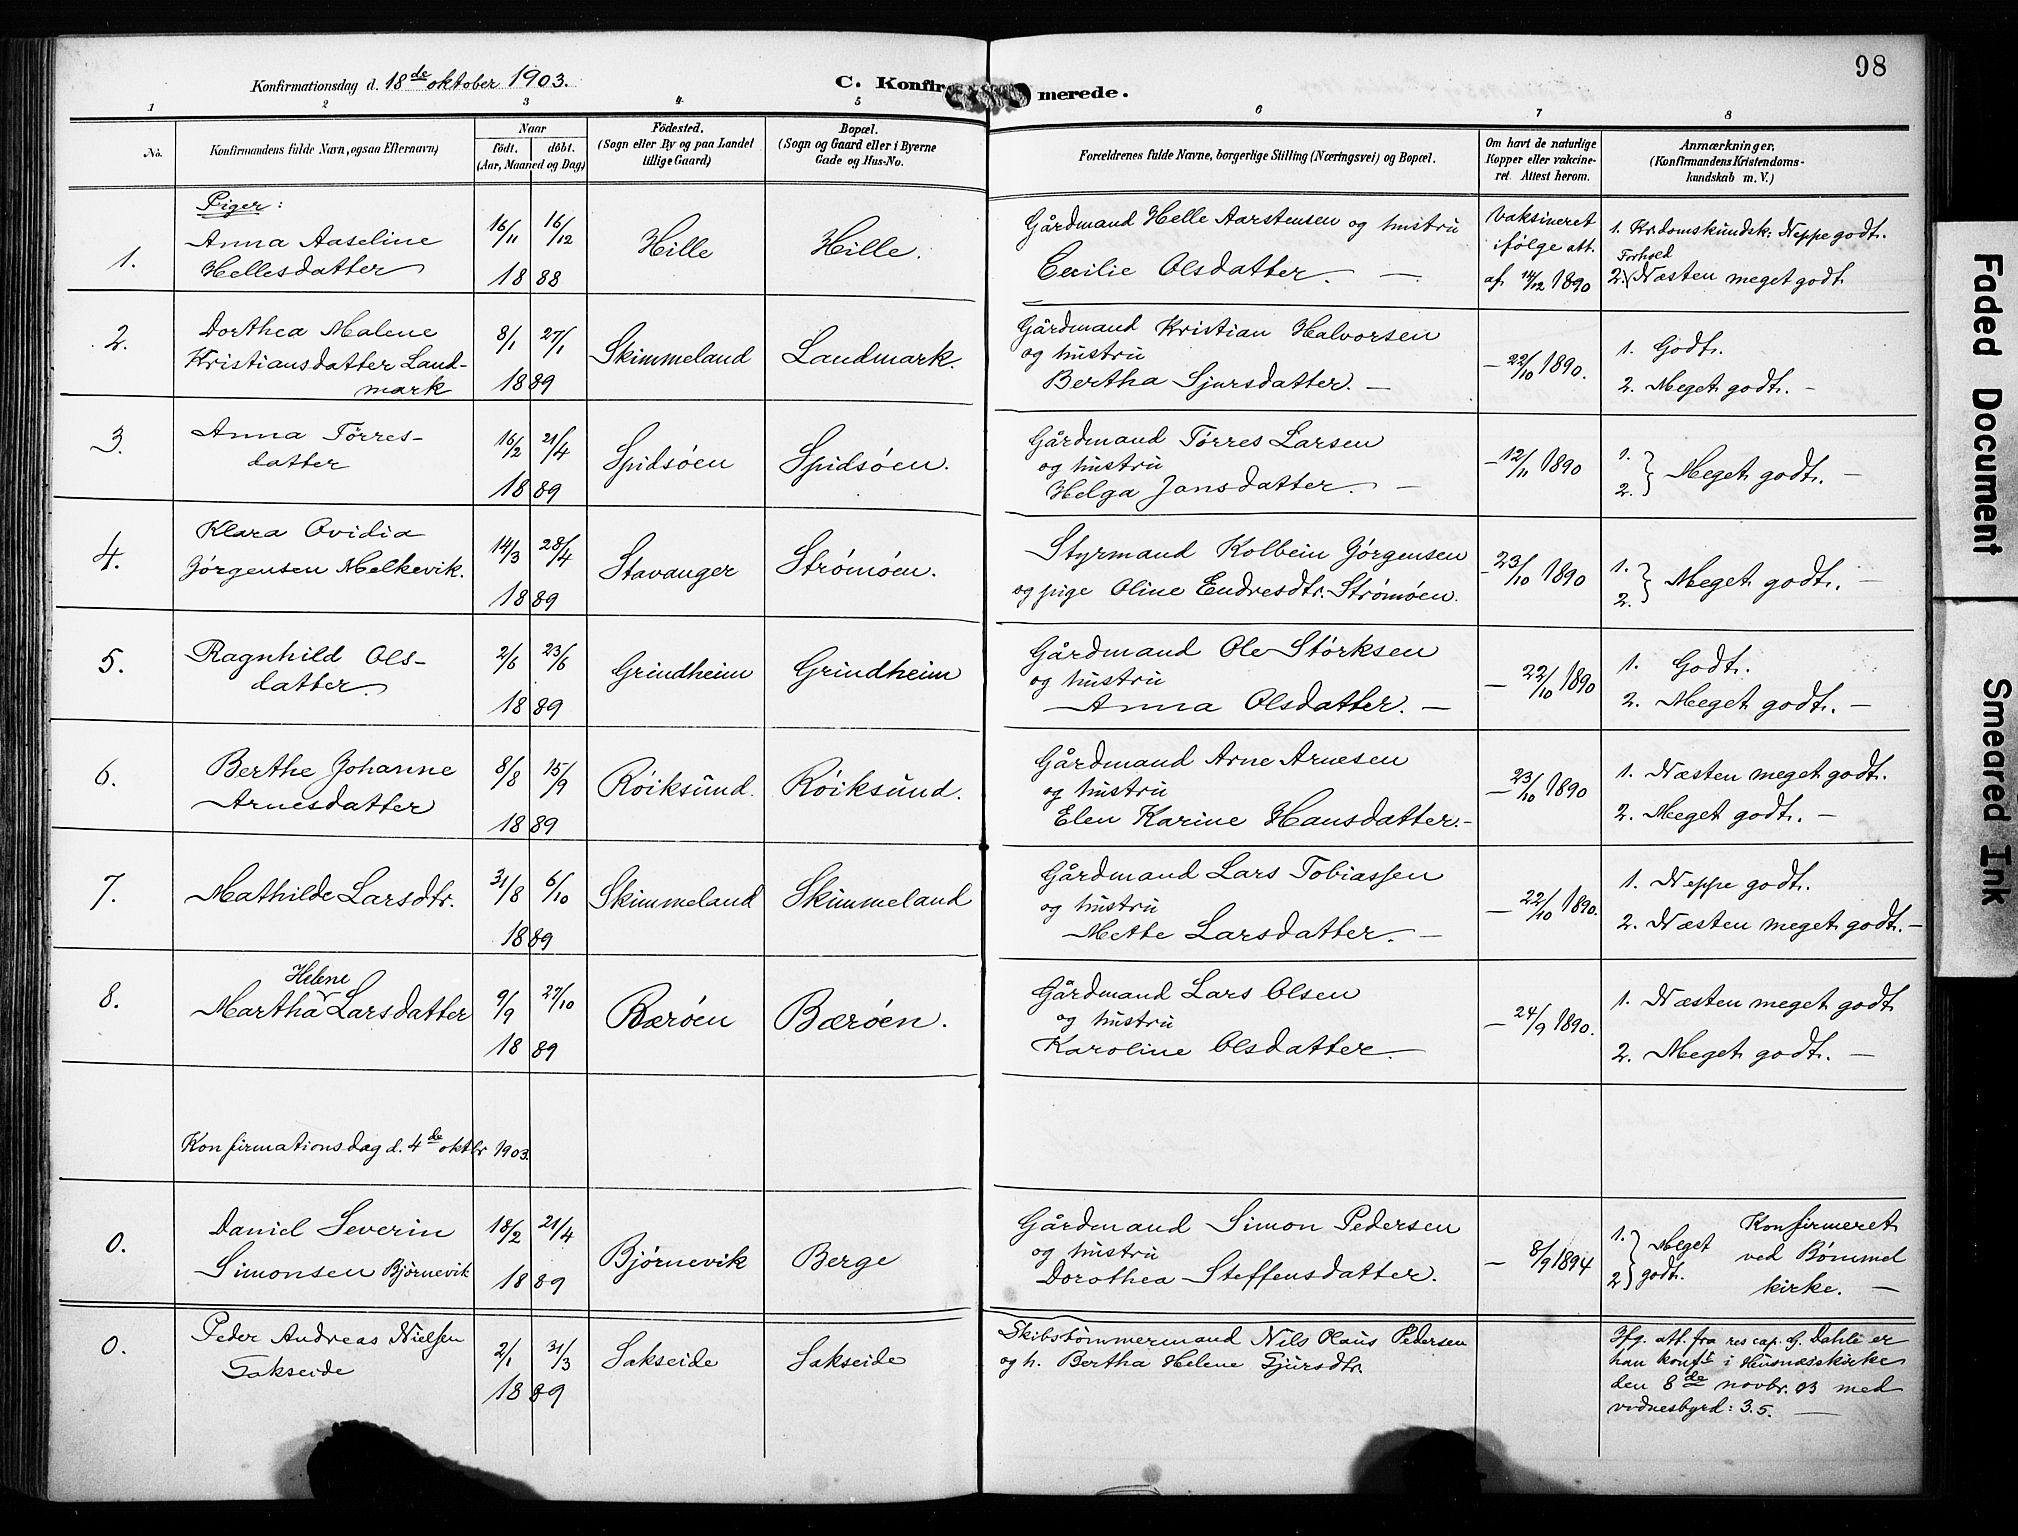 98
Konfirmationsdag d. 18de oktober 1903.
C. Konfirmerede.
1 2 3 4 5 6 7 8
No.
Konfirmandens fulde Navn, ogsaa Efternavn)
Naar
födt. döbt.
(Aar, Maaned og Dag)
Födested.
(Sogn eller By og paa Landet
tillige Gaard)
Bopæl.
(Sogn og Gaard eller i Byerne
Gade og Hus-No.
Forældrenes fulde Navne, borgerlige Stilling (Næringsvei) og Bopæl.
Om havt de naturlige
Kopper eller vakcine-
ret. Attest herom.
Anmærkninger,
(Konfirmandens Kristendoms-
kundskab m. V.)
Piger:
1. Anna Aaseline
Hellesdatter
16/11 16/12
1888
Hille
Hille.
Gårdmand Helle Aarstensen og hustru
Cecilie Olsdatter. —
Vaksineret
ifølge att.
af 14/12 1890
1. Kr.domskundsk: Neppe godt.
Forhold
2. Næsten meget godt
2. Dorthea Malene
Kristiansdatter Land-
mark
8/1 27/1
1889
Skimmeland
Landmark.
Gårdmand Kristian Halvorsen
og hustru
Bertha Sjursdatter. —
— 22/10 1890.
1. Godt.
2. Meget godt. —
3. Anna Tørres-
datter
16/2 21/4
1889
Spidsøen
Spidsøen.
Gårdmand Tørres Larsen
og hustru
Helga Jansdatter. —
— 12/11 1890
1.
2. } Meget godt. —
4. Klara Ovidia
Jørgensen Melkevik.
14/3 28/4
1889
Stavanger
Strømøen.
Styrmand Kolbein Jørgensen
og pige Oline Endresdtr. Strømøen.
— 23/10 1890
1.
2. } Meget godt. —
5. Ragnhild Ols-
datter.
2/6 23/6
1889
Grindheim
Grindheim
Gårdmand Ole Størksen
og hustru
Anna Olsdatter. —
— 22/10 1890
1. Godt.
2. Meget godt. —
6. Berthe Johanne
Arnesdatter
8/8 15/9
1889
Røiksund.
Røiksund.
Gårdmand Arne Arnesen
og hustru
Elen Karine Hansdatter. —
— 23/10 1890
1. Næsten meget godt.
2. Meget godt. —
7. Mathilde Larsdtr.
31/8 6/10
1889
Skimmeland
Skimmeland
Gårdmand Lars Tobiassen
og hustru
Mette Larsdatter. —
— 22/10 1890.
1. Neppe godt.
2. Næsten meget godt. —
8. Helene
Martha Larsdatter
9/9 27/10
1889
Bærøen
Bærøen.
Gårdmand Lars Olsen
og hustru
Karoline Olsdatter. —
— 24/9 1890.
1. Næsten meget godt
2. Meget godt. —
Konfirmationsdag d. 4de oktbr 1903.
0. Daniel Severin
Simonsen Bjørnevik
18/2 21/4
1889
Bjørnevik
Berge
Gårdmand Simon Pedersen
og hustru
Dorothea Steffensdatter.
— 8/9 1894
1.
2 } Meget
godt.
Konfirmeret
ved Bømmel
kirke. —
0. Peder Andreas Nielsen
Sakseide
2/1 31/3
1889
Sakseide
Sakseide
Skibstømmermand Nils Olaus Pedersen
og h. Bertha Helene Sjursdtr.
Ifg. att. fra res cap. G. Dahle er
han konft i Husnæs kirke
den 8de novbr. 03 med
vidnesbyrd: 3.5. —
Faded Document
Smeared Ink